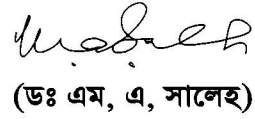 (ডঃ এম, এ, সালেহ)